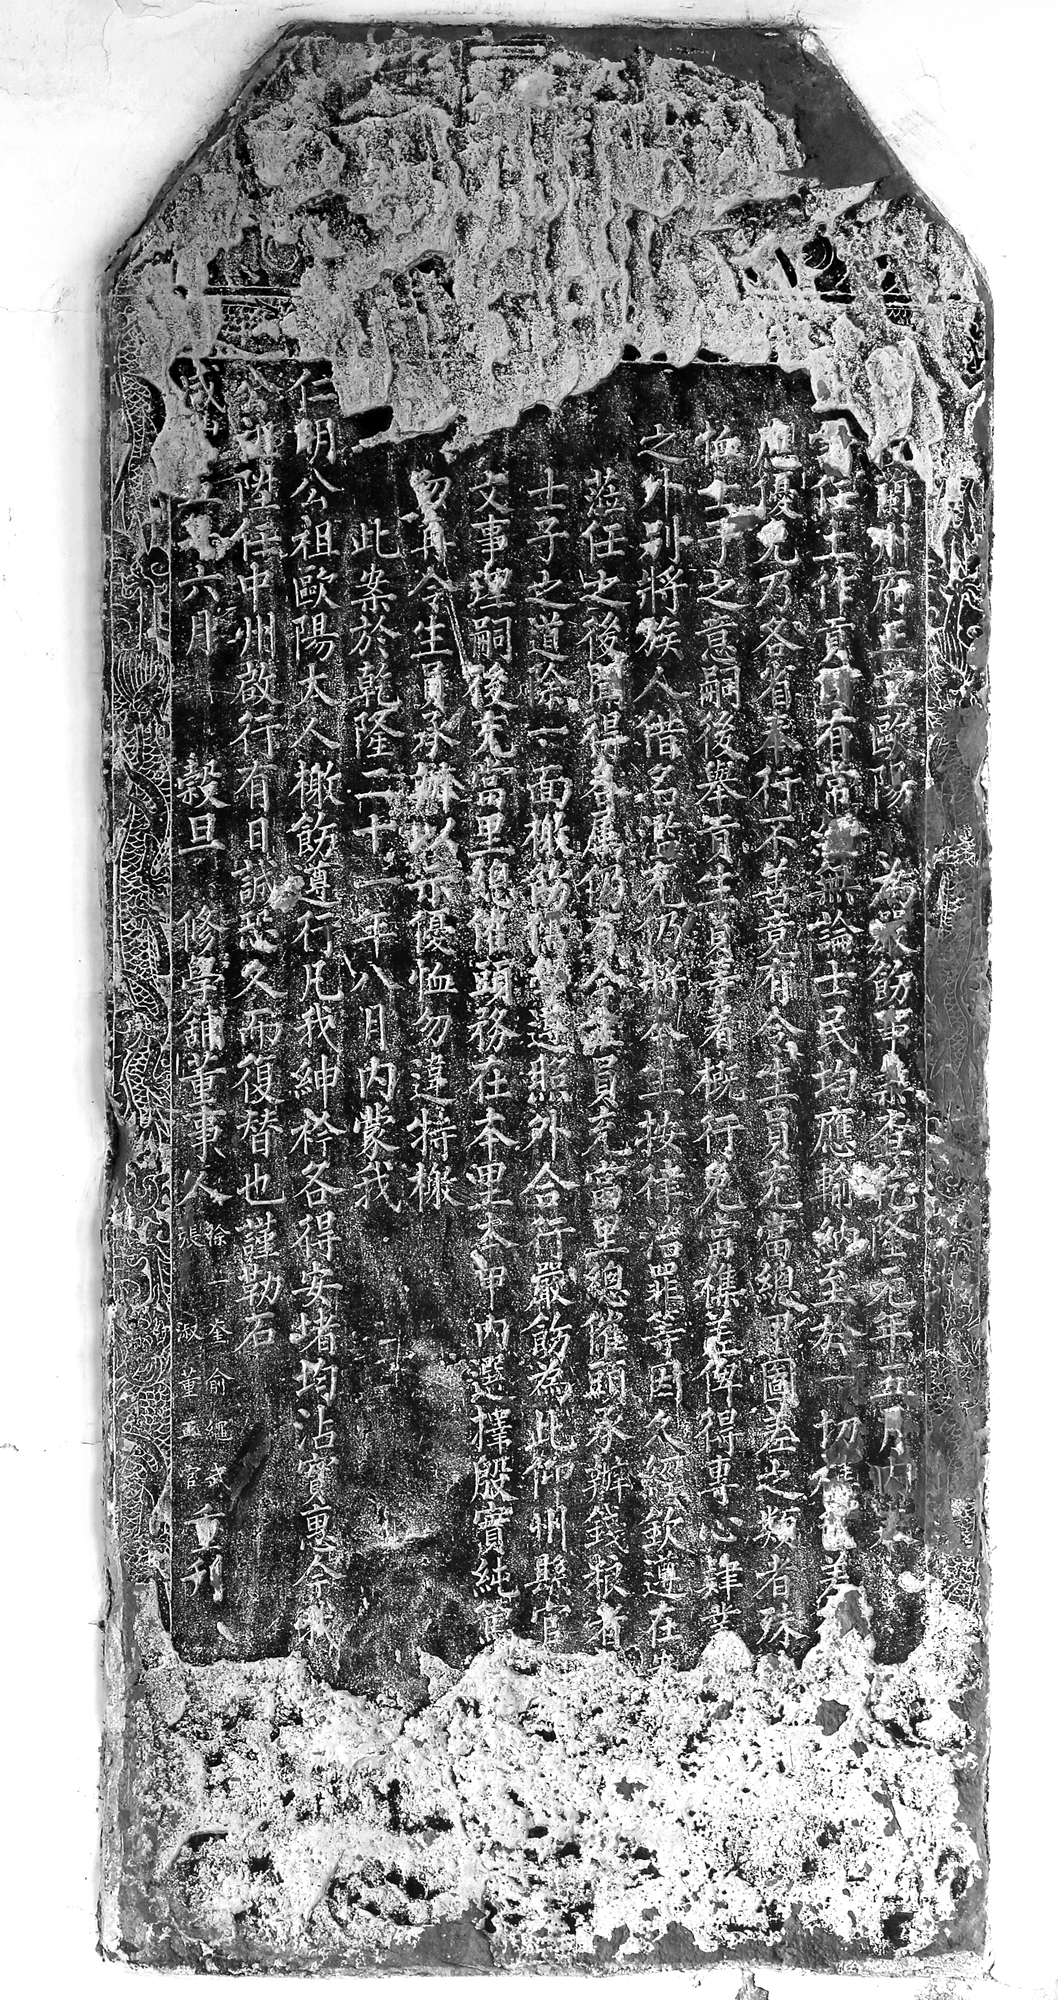 蘭州府正堂歐陽 為嚴飭事案查乾隆元年五月內
任土作貢國有常 無論士民均應輸納至於一切雜 差
應優免乃各省奉行不善竟有令生員充當總甲圖差之類者殊
恤士子之意嗣後舉貢生員等着概行免當雜差俾得專心肄業
之外別將族人借名濫充仍將本生按律治罪等因久經欽遵在
蒞任之後聞得各屬仍有令生員充當里總催頭承辦錢粮者
士子之道除一面檄飭 遵照外合行嚴飭為此仰州縣官
文事理嗣後充當里總催頭務在本里本甲內選擇殷實純篤
勿再令生員承辦以示優恤勿違特檄
此案於乾隆二十一年八月內蒙我
仁明公祖歐陽大人檄飭遵行凡我紳衿各得安堵均沾實惠今我
公祖陞任中州啟行有日誠恐久而復替也謹勒石
歲 六月 穀旦 修學舖董事人 徐一奎 俞繩 張淑 董 官 重刋